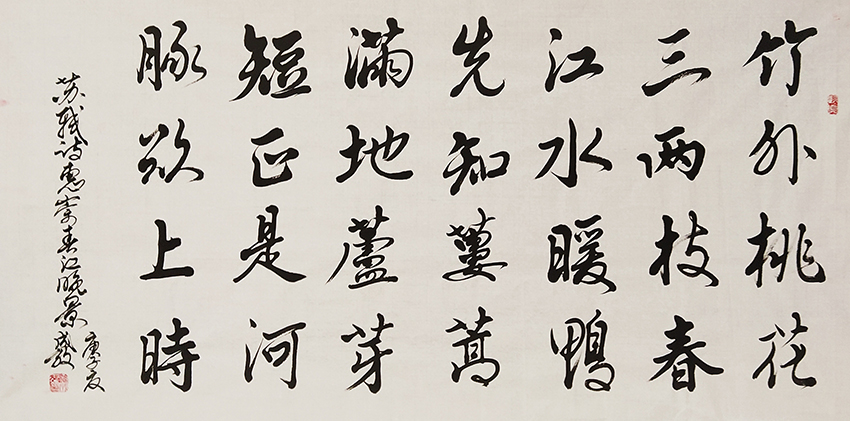 竹外桃花
三兩枝春
江水暖鴨
先知蔞蒿
滿地蘆芽
短正是河
豚欲上時
苏轼诗惠崇春江晚景
庚子夏